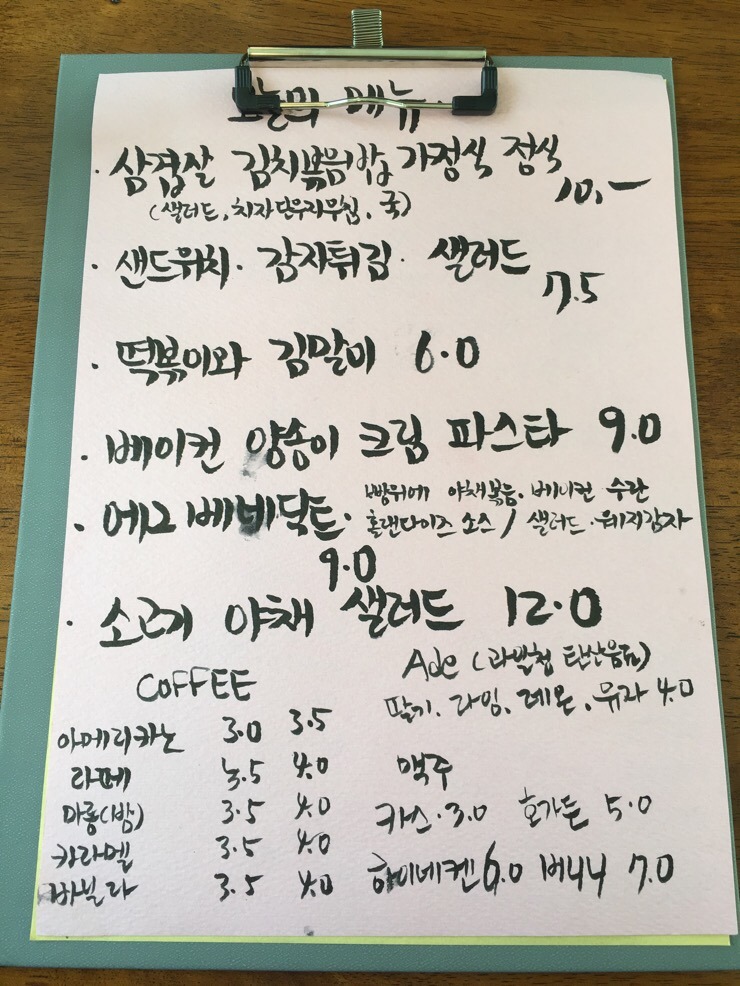 오늘의 메뉴
· 삼겹살 김치볶음밥 가정식 정식 10.-
(샐러드, 치자단무지무침, 국)
· 샌드위치 · 감자튀김 · 샐러드 7.5
· 떡볶이와 김말이 6.0
· 베이컨 양송이 크림 파스타 9.0
· 에그베네딕트 · 빵위에 야채볶음, 베이컨 수란
홀랜다이즈 소스 / 샐러드 · 웨지감자
9.0
· 소고기 야채 샐러드 12.0
COFFEE
아메리카노 3.0 3.5
라떼 3.5 4.0
마롱(밤) 3.5 4.0
카라멜 3.5 4.0
바닐라 3.5 4.0
Ade (과일청 탄산음료)
딸기, 라임, 레몬, 유자 4.0
맥주
카스 · 3.0 호가든 5.0
하이네켄 6.0 버니니 7.0